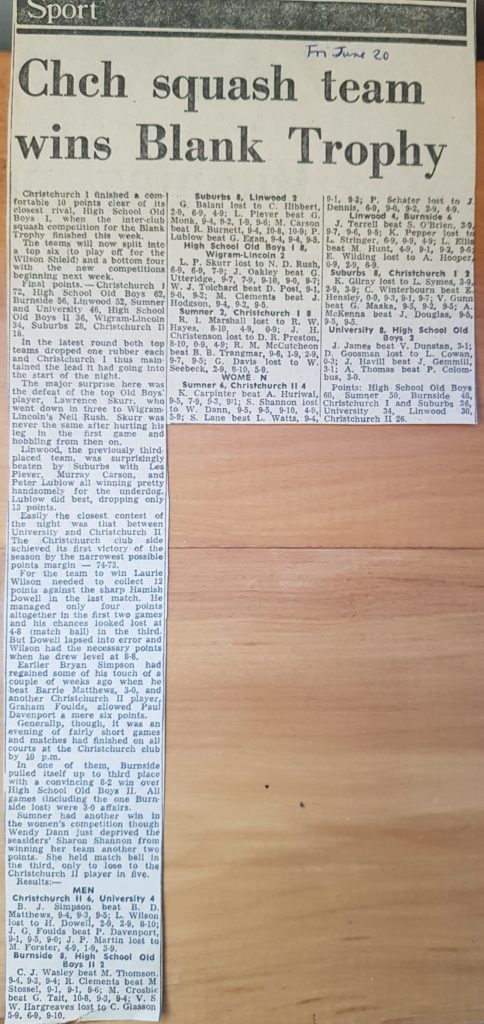 Sport
Fri June 20
Chch squash team
wins Blank Trophy
Christchurch I finished a com-
fortable 10 points clear of its
closest rival, High School Old
Boys I, when the inter-club
squash competition for the Blank
Trophy finished this week.
The teams will now split into
a top six (to play off for the
Wilson Shield) and a bottom four
with the new competitions
beginning next week.
Final points.— Christchurch I
72, High School Old Boys 62,
Burnside 56, Linwood 52, Sumner
and University 46, High School
Old Boys II 36, Wigram-Lincoln
34, Suburbs 28, Christchurch II
18.
In the latest round both top
teams dropped one rubber each
and Christchurch I thus main-
tained the lead it had going into
the start of the night.
The major surprise here was
the defeat of the top Old Boys'
player, Lawrence Skurr, who
went down in three to Wigram-
Lincoln's Neil Rush. Skurr was
never the same after hurting his
leg in the first game and
hobbling from then on.
Linwood, the previously third-
placed team, was surprisingly
beaten by Suburbs with Les
Plever, Murray Carson, and
Peter Lublow all winning pretty
handsomely for the underdog.
Lublow did best, dropping only
13 points.
Easily the closest contest of
the night was that between
University and Christchurch II
The Christchurch club side
achieved its first victory of the
season by the narrowest possible
points margin — 74-73.
For the team to win Laurie
Wilson needed to collect 12
points against the sharp Hamish
Dowell in the last match. He
managed only four points
altogether in the first two games
and his chances looked lost at
4-8 (match ball) in the third.
But Dowell lapsed into error and
Wilson had the necessary points
when he drew level at 8-8.
Earlier Bryan Simpson had
regained some of his touch of a
couple of weeks ago when he
beat Barrie Matthews, 3-0, and
another Christchurch II player,
Graham Foulds, allowed Paul
Davenport a mere six points.
Generallp, though, it was an
evening of fairly short games
and matches had finished on all
courts at the Christchurch club
by 10 p.m.
In one of them, Burnside
pulled itself up to third place
with a convincing 8-2 win over
High School Old Boys II. All
games (including the one Burn-
side lost) were 3-0 affairs.
Sumner had another win in
the women's competition though
Wendy Dann just deprived the
seasiders' Sharon Shannon from
winning her team another two
points. She held match ball in
the third, only to lose to the
Christchurch II player in five.
Results:—
MEN
Christchurch II 6, University 4
B. J. Simpson beat B. D.
Matthews, 9-4, 9-3, 9-5; L. Wilson
lost to H. Dowell, 2-9, 2-9, 8-10;
J. G. Foulds beat P. Davenport,
9-1, 9-5, 9-0; J. P. Martin lost to
M. Forster, 4-9, 1-9, 3-9.
Burnside 8, High School Old
Boys II 2
C. J. Wasley beat M. Thomson,
9-4, 9-3, 9-4; R. Clements beat M
Stossel, 9-1, 9-1, 9-6; M. Crosbie
beat G. Tait, 10-8, 9-3, 9-4; V. S.
W. Hargreaves lost to C. Glasson
5-9, 6-9, 9-10.
Suburbs 8, Linwood 2
G. Balani lost to C. Hibbert,
2-9, 6-9, 4-9; L. Plever beat G.
Monk, 9-4, 9-2, 1-9, 9-6; M. Carson
beat R. Burnett, 9-4, 10-8, 10-9; P.
Lublow beat G. Egan, 9-4, 9-4, 9-5.
High School Old Boys I 8,
Wigram-Lincoln 2
L. P. Skurr lost to N. D. Rush,
6-9, 6-9, 7-9; J. Oakley beat G.
Utteridge, 9-7, 7-9, 9-10, 9-0, 9-7;
W. J. Tolchard beat D. Post, 9-1,
9-0, 9-2; M. Clements beat J.
Hodgson, 9-4, 9-2, 9-5.
Sumner 2, Christchurch I 8
R. I. Marshall lost to R. W.
Hayes, 8-10, 4-9, 0-9; J. H.
Christenson lost to D. R. Preston,
8-10, 0-9, 4-9; R. M. McCutcheon
beat B. B. Trangmar, 9-6, 1-9, 2-9,
9-7, 9-5; G. Davis lost to W.
Seebeck, 2-9, 8-10, 5-9.
WOMEN
Sumner 6, Christchurch II 4
K. Carpinter beat A. Huriwai,
9-5, 7-9, 9-3, 9-1; S. Shannon lost
to W. Dann, 9-5, 9-5, 9-10, 4-9,
5-9; S. Lane beat L. Watts, 9-4,
9-1, 9-2; P. Schafer lost to J.
Dennis, 6-9, 9-0, 9-2, 2-9, 4-9.
Linwood 4, Burnside 6
J. Terrell beat S. O'Brien, 3-9,
9-7, 9-5, 9-5; K. Pepper lost to
L. Stringer, 6-9, 0-9, 4-9; L. Ellis
beat M. Hunt, 4-9, 9-1, 9-2, 9-6;
E. Wilding lost to A. Hooper,
0-9, 2-9, 6-9.
Suburbs 8, Christchurch I 2
K. Gilray lost to L. Symes, 3-9,
2-9, 2-9; C. Winterbourn beat E.
Hensley, 0-9, 9-3, 9-1, 9-7; V. Gunn
beat G. Maaka, 9-5, 9-2, 9-5; A.
McKenna beat J. Douglas, 9-5,
9-5, 9-5.
University 8, High School Old
Boys 2
J. James beat V. Dunstan, 3-1;
D. Goosman lost to L. Cowan,
0-3; J. Havill beat J. Gemmill,
3-1; A. Thomas beat P. Colom-
bus, 3-0.
Points: High School Old Boys
60, Sumner 50, Burnside 48,
Christchurch I and Suburbs 36,
University 34, Linwood 30,
Christchurch II 26.